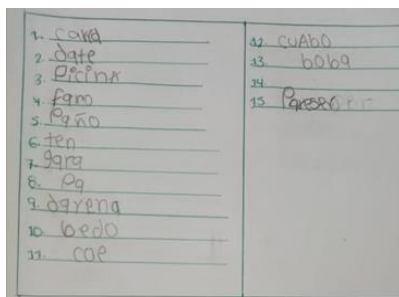 1. cand
2. date
3. Picina
4. fam
5. Paño
6. ten
7. gara
8. Pa
9. darena
10. bedo
11. cae
12 cuAbo
13. boba
14
15 Pareser